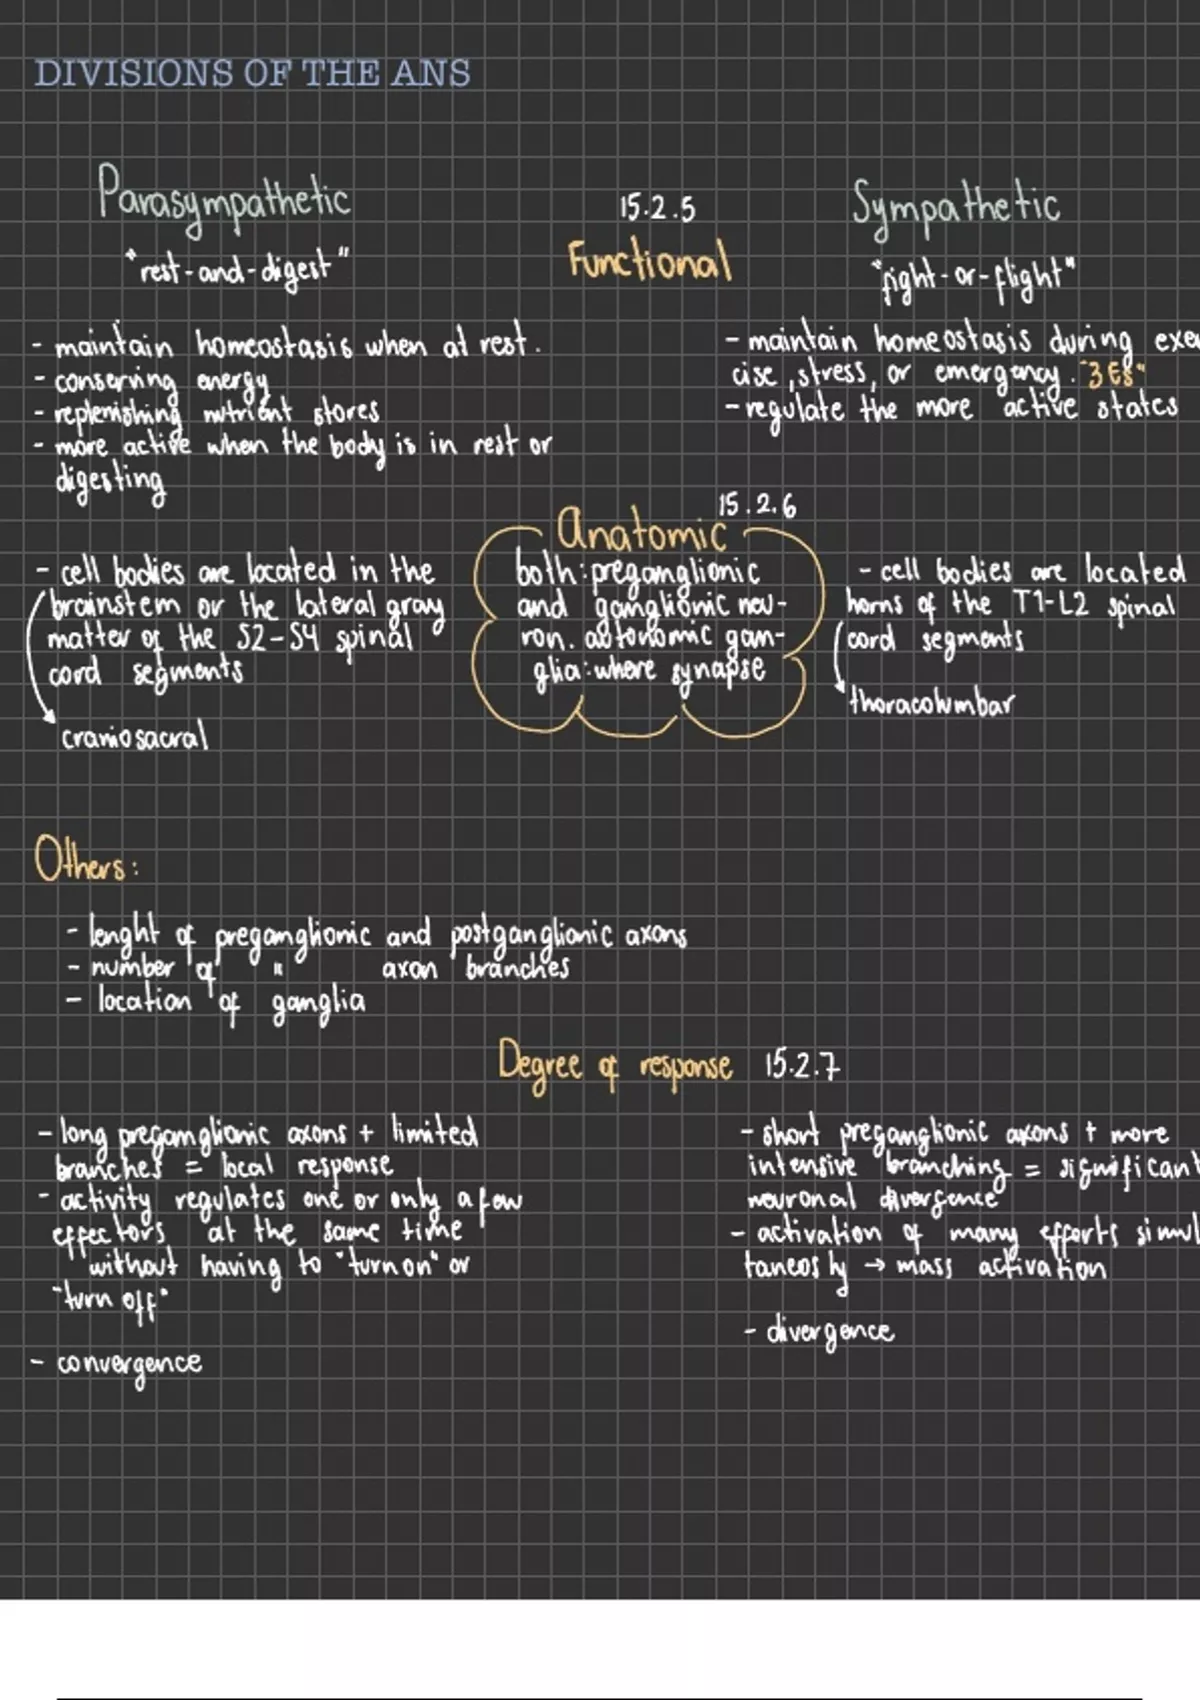 DIVISIONS OF THE ANS
Parasympathetic
"rest-and-digest"
- maintain homeostasis when at rest.
- conserving energy
- replenishing nutrient stores
- more active when the body is in rest or
digesting
15.2.5
Functional
Sympathetic
"fight-or-flight"
- maintain homeostasis during exer
cise, stress, or emergency. "3 Es"
- regulate the more active states
15.2.6
Anatomic
- cell bodies are located in the
brainstem or the lateral gray
matter of the S2-S4 spinal
cord segments
craniosacral
both: preganglionic
and ganglionic neu-
ron. autonomic gan-
glia: where synapse
- cell bodies are located
horns of the T1-L2 spinal
cord segments
thoracolumbar
Others:
- lenght of preganglionic and postganglionic axons
- number of " axon branches
- location of ganglia
Degree of response 15.2.7
- long preganglionic axons + limited
branches = local response
- activity regulates one or only a few
effectors at the same time
without having to "turn on" or
"turn off"
- convergence
- short preganglionic axons + more
intensive branching = significant
neuronal divergence
- activation of many efforts simul
taneosly → mass activation
- divergence